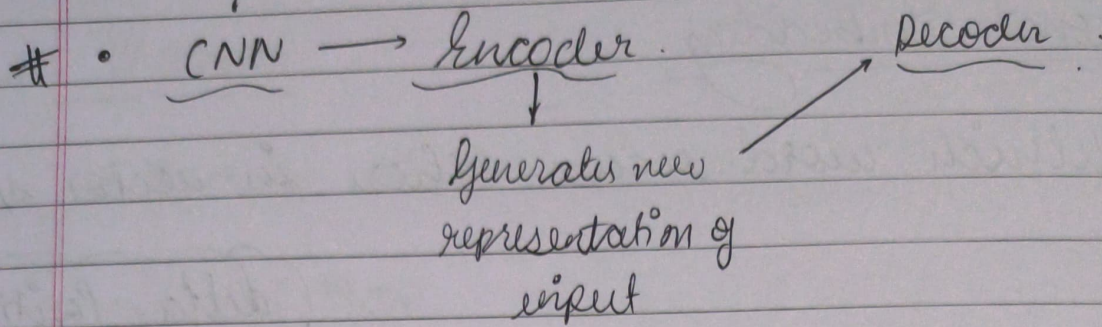 # • CNN → Encoder. Decoder.
Generates new
representation of
input